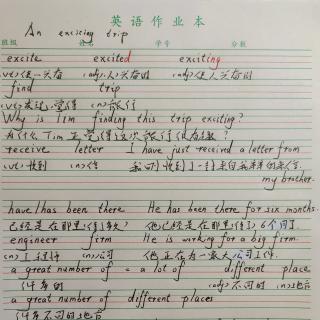 英语作业本
An exciting trip
班级 姓名 学号 分数
excite excited exciting
(vt)使…兴奋 (adj.)人兴奋的 (adj)使人兴奋的
find trip
(vt)发现,觉得 (n)旅行
Why is Tim finding this trip exciting?
为什么Tim正觉得这次旅行很有趣?
receive letter I have just received a letter from
(vt)收到 (n)信 我刚收到了一封来自我弟弟的来信.
my brother.
have/has been there He has been there for six months.
已经是在那里待了多久? 他已经是在那里待了6个月了.
engineer firm He is working for a big firm.
(n)工程师 (n)公司 他正在为一家大公司工作.
a great number of = a lot of different place
许多的 (adj)不同的 (n)地方
a great number of different places
许多不同的地方